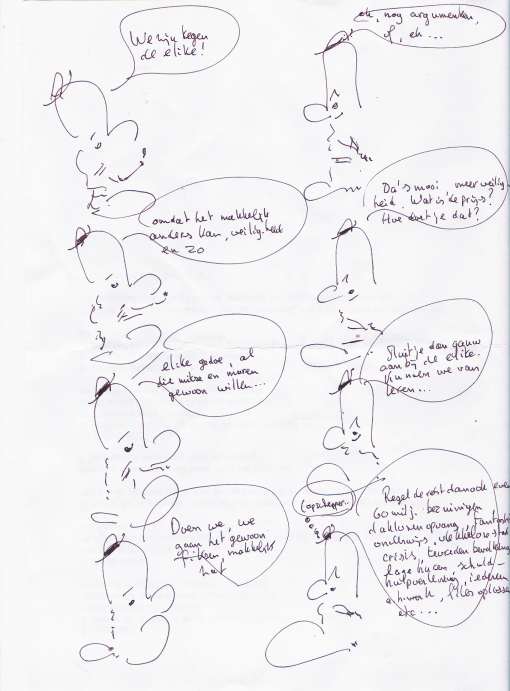 We zijn tegen
de elite!
omdat het makkelijk
anders kan, veiligheid
en zo
elite gedoe, al
die mitse en maren
gewoon willen...
Doen we, we
gaan het gewoon
makkelijk
eh, nog argumenten,
of, eh...
Da's mooi, meer veilig-
heid. Wat is de prijs?
Hoe doet je dat?
Sluit je dan gauw
aan bij de elite.
kunnen we van
leren...
(opschepper...
Regel de rest dan ook even
60 milj. bezuinigen
daklozenopvang,
onderwijs,
crisis, tevreden bevolking
lage huren, schuld-
hulpverlening, iedereen
a.h. werk, files oplossen
etc...